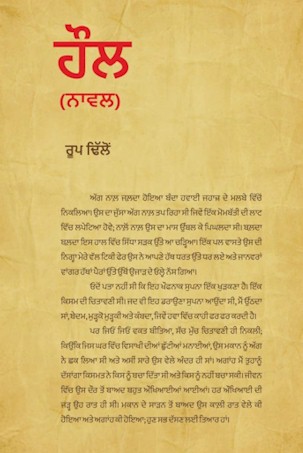 ਹੌਲ
(ਨਾਵਲ)
ਰੂਪ ਢਿੱਲੋਂ
ਅੱਗ ਨਾਲ਼ ਜਲ਼ਦਾ ਹੋਇਆ ਬੰਦਾ ਹਵਾਈ ਜਹਾਜ਼ ਦੇ ਮਲਬੇ ਵਿੱਚੋਂ
ਨਿਕਲਿਆ। ਉਸ ਦਾ ਜੁੱਸਾ ਅੱਗ ਨਾਲ਼ ਤਪ ਰਿਹਾ ਸੀ ਜਿਵੇਂ ਇੱਕ ਮੋਮਬੱਤੀ ਦੀ ਲਾਟ
ਵਿੱਚ ਲਪੇਟਿਆ ਹੋਵੇ; ਨਾਲ਼ੋ ਨਾਲ਼ ਉਸ ਦਾ ਮਾਸ ਉੱਬਲ ਕੇ ਪਿਘਲਦਾ ਸੀ। ਬਲ਼ਦਾ
ਬਲ਼ਦਾ ਇਸ ਹਾਲ ਵਿੱਚ ਸਿੱਧਾ ਸੜਕ ਉੱਤੇ ਆ ਚੜ੍ਹਿਆ। ਇੱਕ ਪਲ ਵਾਸਤੇ ਉਸ ਦੀ
ਨਿਗ੍ਹਾ ਮੇਰੇ ਵੱਲ ਟਿਕੀ ਫੇਰ ਉਸ ਨੇ ਆਪਣੇ ਹੱਥ ਧਰਤ ਉੱਤੇ ਧਰ ਲਏ ਅਤੇ ਜਾਨਵਰਾਂ
ਵਾਂਗਰ ਹੱਥਾਂ ਪੈਰਾਂ ਉੱਤੇ ਉੱਥੋਂ ਉਜਾੜ ਦੇ ਓਲ੍ਹੇ ਨੱਸ ਗਿਆ।
ਓਦੋਂ ਪਤਾ ਨਹੀਂ ਸੀ ਕਿ ਇਹ ਖੌਫਨਾਕ ਸੁਪਨਾ ਇੱਕ ਖੁੜਕਣਾ ਹੈ। ਇੱਕ
ਕਿਸਮ ਦੀ ਚਿਤਾਵਣੀ ਸੀ। ਜਦ ਵੀ ਇਹ ਡਰਾਉਣਾ ਸੁਪਨਾ ਆਉਂਦਾ ਸੀ, ਮੈਂ ਉੱਠਦਾ
ਸਾਂ, ਬੇਦਮ, ਮੁੜ੍ਹਕੋ ਮੁੜ੍ਹਕੀ ਅਤੇ ਕੰਬਦਾ, ਜਿਵੇਂ ਹਵਾ ਵਿੱਚ ਕਾਹੀ ਫਰ ਫਰ ਕਰਦੀ ਹੈ।
ਪਰ ਜਿਓਂ ਜਿਓਂ ਵਕਤ ਬੀਤਿਆ, ਸੱਚ ਮੁੱਚ ਚਿਤਾਵਣੀ ਹੀ ਨਿਕਲੀ;
ਕਿਉਂਕਿ ਜਿਸ ਘਰ ਵਿੱਚ ਵਿਸਾਖੀ ਦੀਆਂ ਛੁੱਟੀਆਂ ਮਨਾਈਆਂ, ਉਸ ਮਕਾਨ ਨੂੰ ਅੱਗ
ਨੇ ਫੜ ਲਿਆ ਸੀ ਅਤੇ ਅਸੀਂ ਸਾਰੇ ਉਸ ਵੇਲੇ ਅੰਦਰ ਹੀ ਸਾਂ। ਅਗਾਂਹ ਮੈਂ ਤੁਹਾਨੂੰ
ਦੱਸਾਂਗਾ ਕਿਸਮਤ ਨੇ ਕਿਸ ਨੂੰ ਬਚਾ ਦਿੱਤਾ ਸੀ ਅਤੇ ਕਿਸ ਨੂੰ ਨਹੀਂ ਬਚਾ ਸਕੀ। ਜੀਵਨ
ਵਿੱਚ ਉਸ ਦੌਰ ਤੋਂ ਬਾਅਦ ਬਹੁਤ ਔਖਿਆਈਆਂ ਆਈਆਂ। ਹਰ ਔਖਿਆਈ ਦੀ
ਜੜ੍ਹ ਉਹ ਰਾਤ ਹੀ ਸੀ। ਮਕਾਨ ਦੇ ਸਾੜਨ ਤੋਂ ਬਾਅਦ ਉਸ ਕਾਲ਼ੀ ਰਾਤ ਵੇਲੇ ਕੀ
ਹੋਇਆ ਅਤੇ ਅਗਾਂਹ ਕੀ ਹੋਇਆ; ਹੁਣ ਸਭ ਦੱਸਣ ਲਈ ਤਿਆਰ ਹਾਂ।